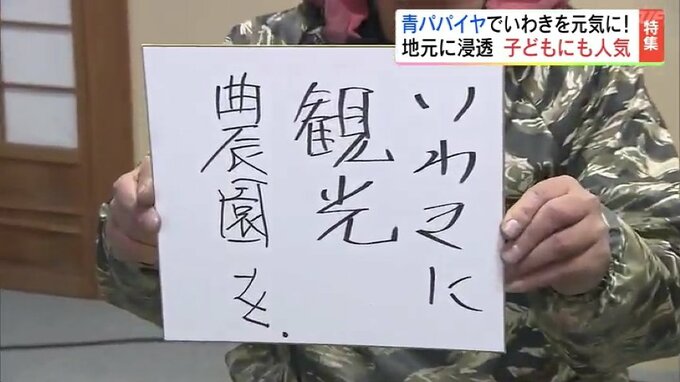 青パパイヤでいわきを元気に!
地元に浸透 子どもにも人気
特集
いわきに
観光
農園を.